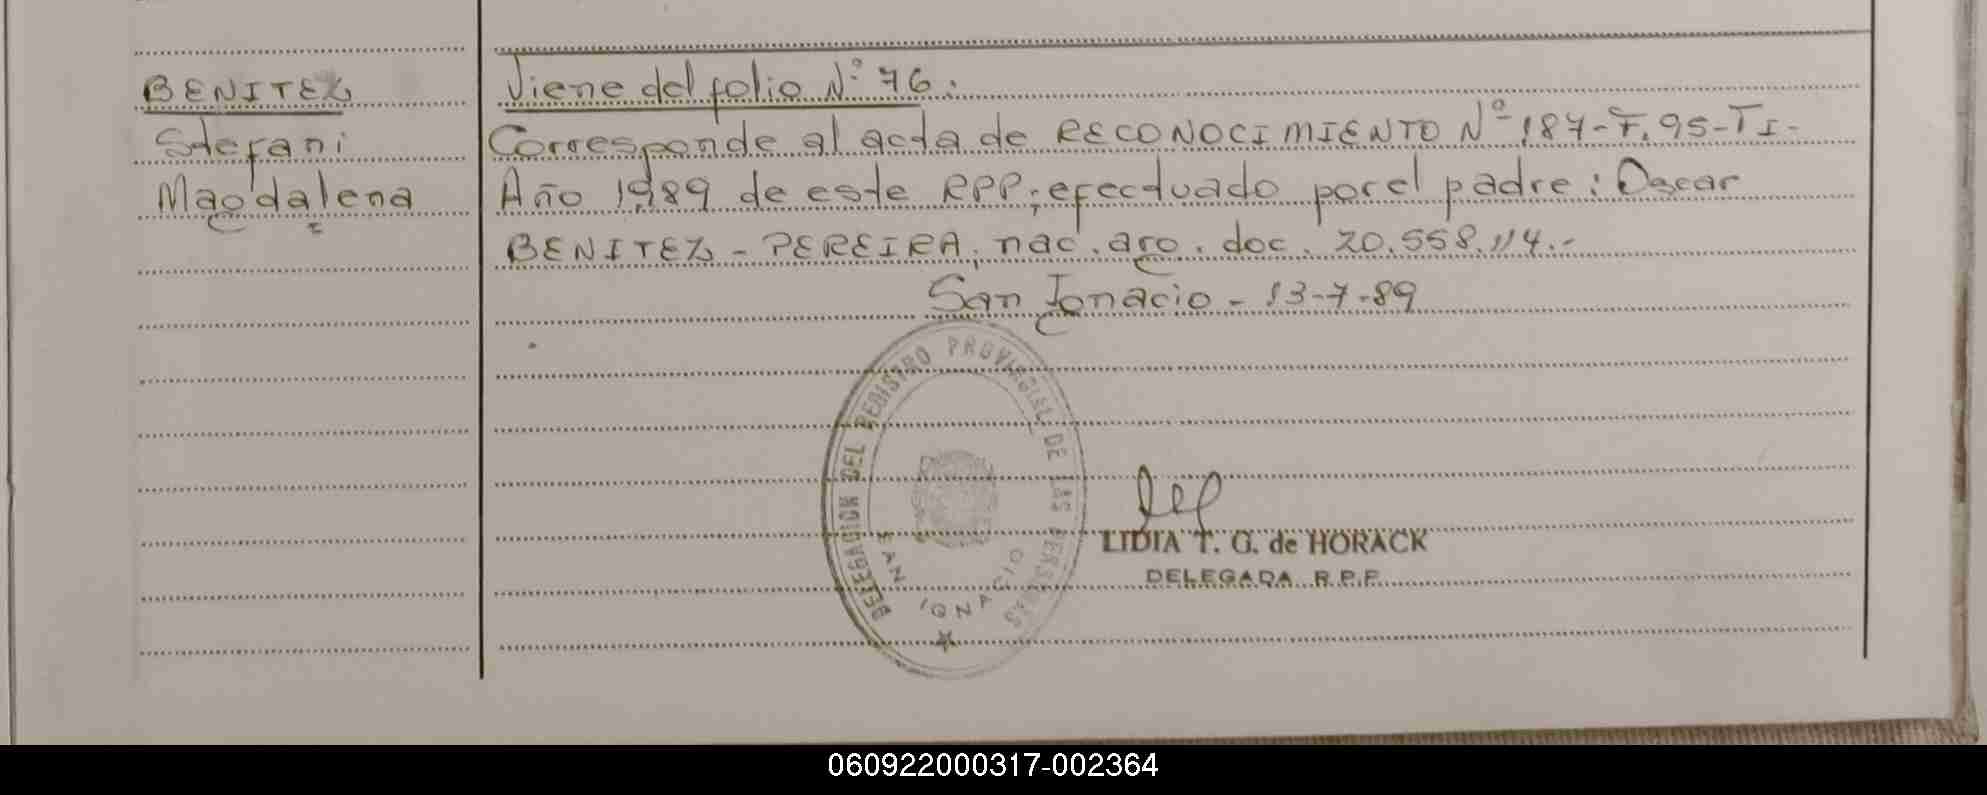 BENITEZ
Stefani
Magdalena
Viene del folio Nº 76.
Corresponde al acta de RECONOCIMIENTO Nº 187-F.95-TI-
Año 1989 de este RPP; efectuado por el padre: Oscar
BENITEZ - PEREIRA, nac. arg. doc. 20.558.114.-
San Ignacio - 13-7-89
DELEGACION DEL REGISTRO PROVINCIAL DE LAS PERSONAS
SAN IGNACIO
LIDIA T. G. de HORACK
DELEGADA R.P.P.
060922000317-002364